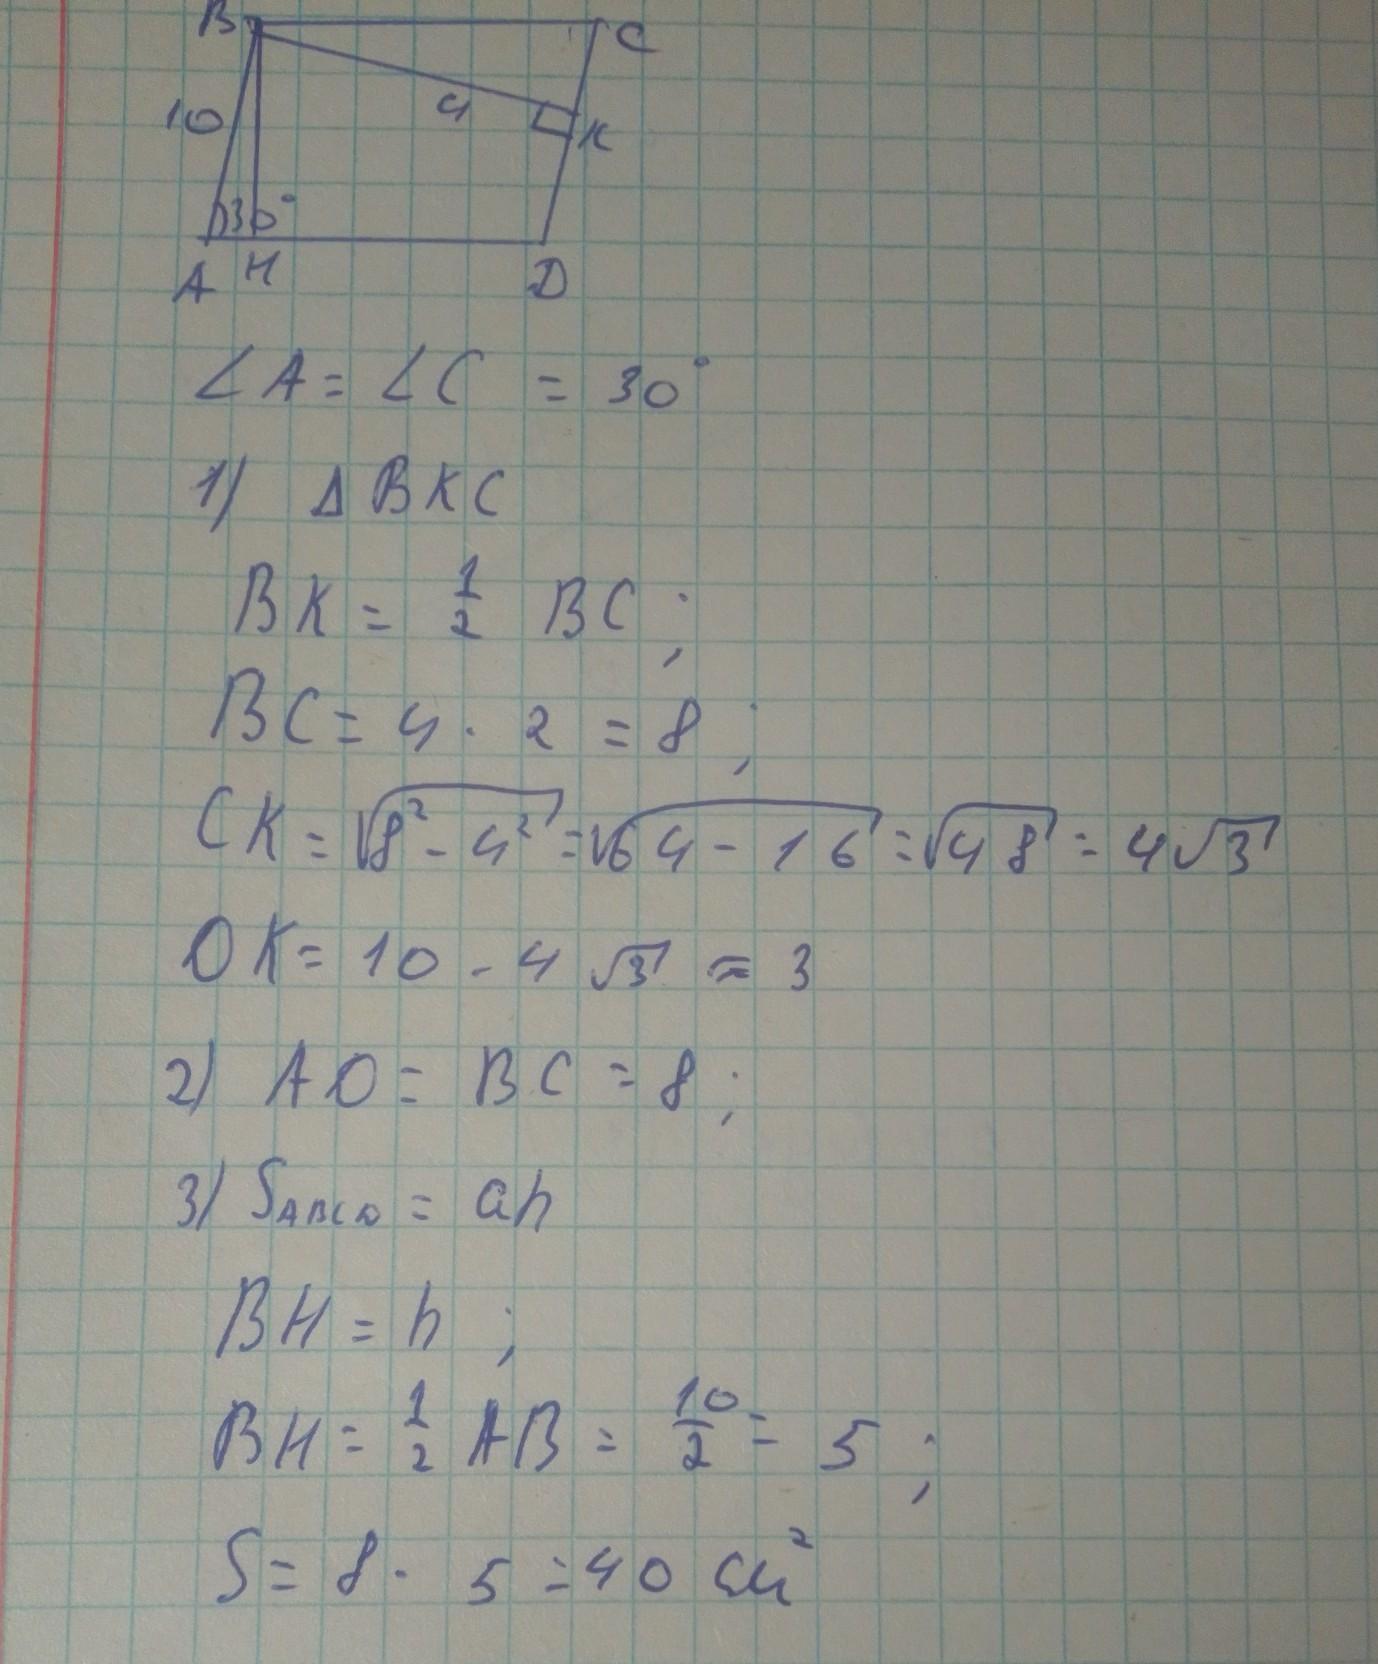 B C
10 4 K
30°
A H D
∠A = ∠C = 30°
1) Δ BKC
BK = 1/2 BC;
BC = 4 · 2 = 8;
CK = √(8² - 4²) = √(64 - 16) = √48 = 4√3
DK = 10 - 4√3 ≈ 3
2) AD = BC = 8;
3) S_ABCD = ah
BH = h;
BH = 1/2 AB = 10/2 = 5;
S = 8 · 5 = 40 см²